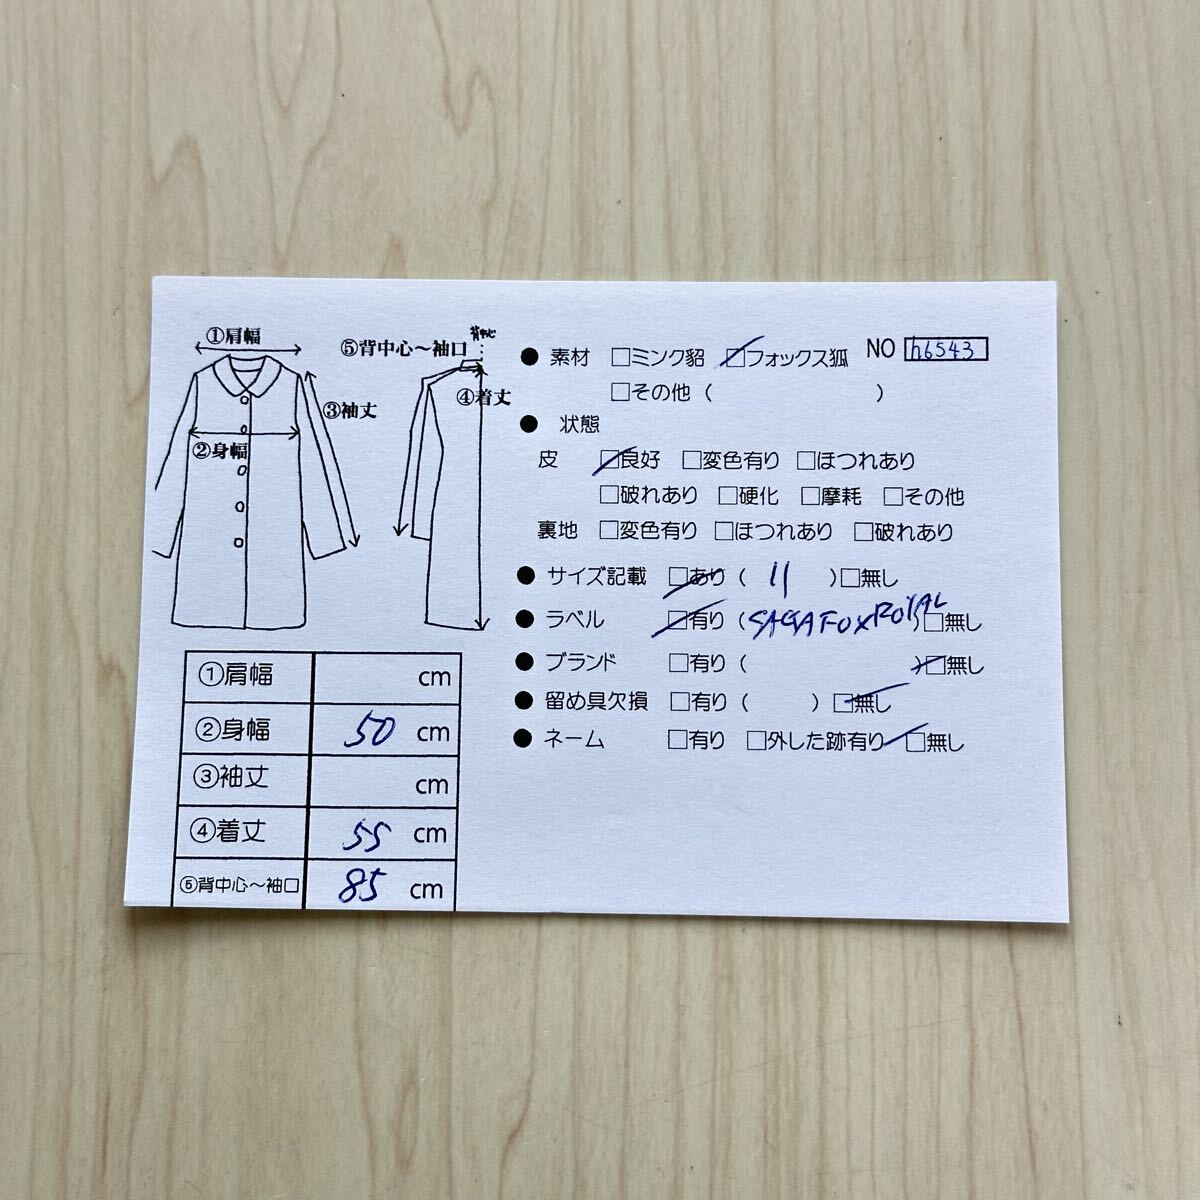 ①肩幅
⑤背中心～袖口
背中心
③袖丈
④着丈
②身幅
● 素材 □ミンク貂 □フォックス狐 NO h6543
□その他 ( )
● 状態
皮 □良好 □変色有り □ほつれあり
□破れあり □硬化 □摩耗 □その他
裏地 □変色有り □ほつれあり □破れあり
● サイズ記載 □あり ( 11 ) □無し
● ラベル □有り (SAGA FOX ROYAL) □無し
● ブランド □有り ( ) □無し
● 留め具欠損 □有り ( ) □無し
● ネーム □有り □外した跡有り □無し
①肩幅 cm
②身幅 50 cm
③袖丈 cm
④着丈 55 cm
⑤背中心～袖口 85 cm